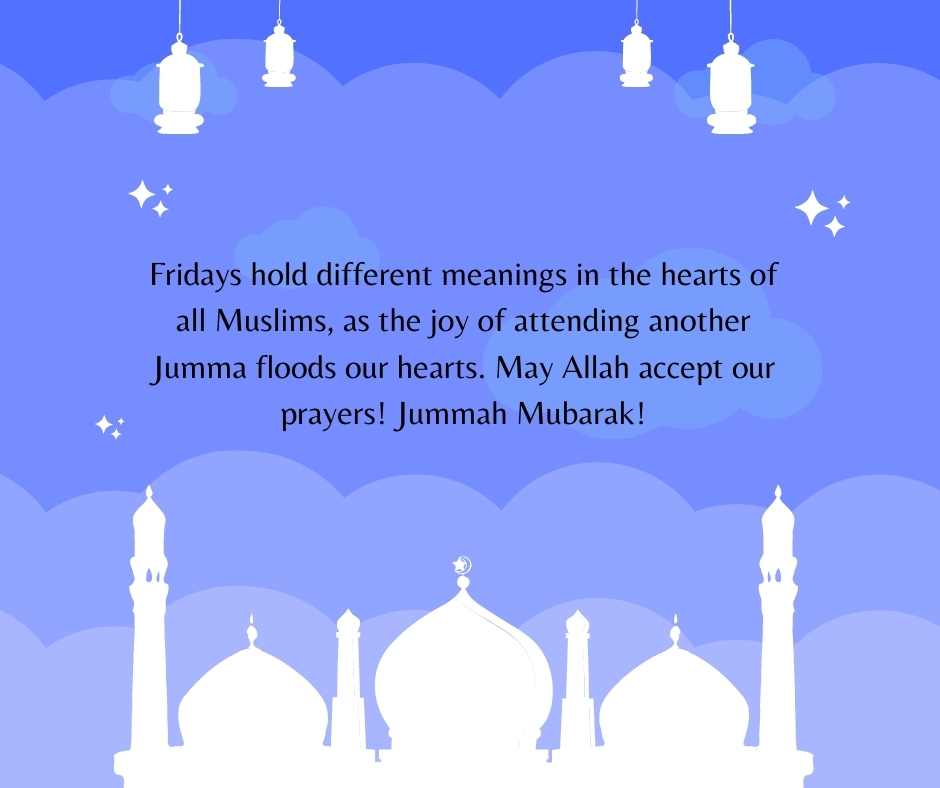 Fridays hold different meanings in the hearts of
all Muslims, as the joy of attending another
Jumma floods our hearts. May Allah accept our
prayers! Jummah Mubarak!